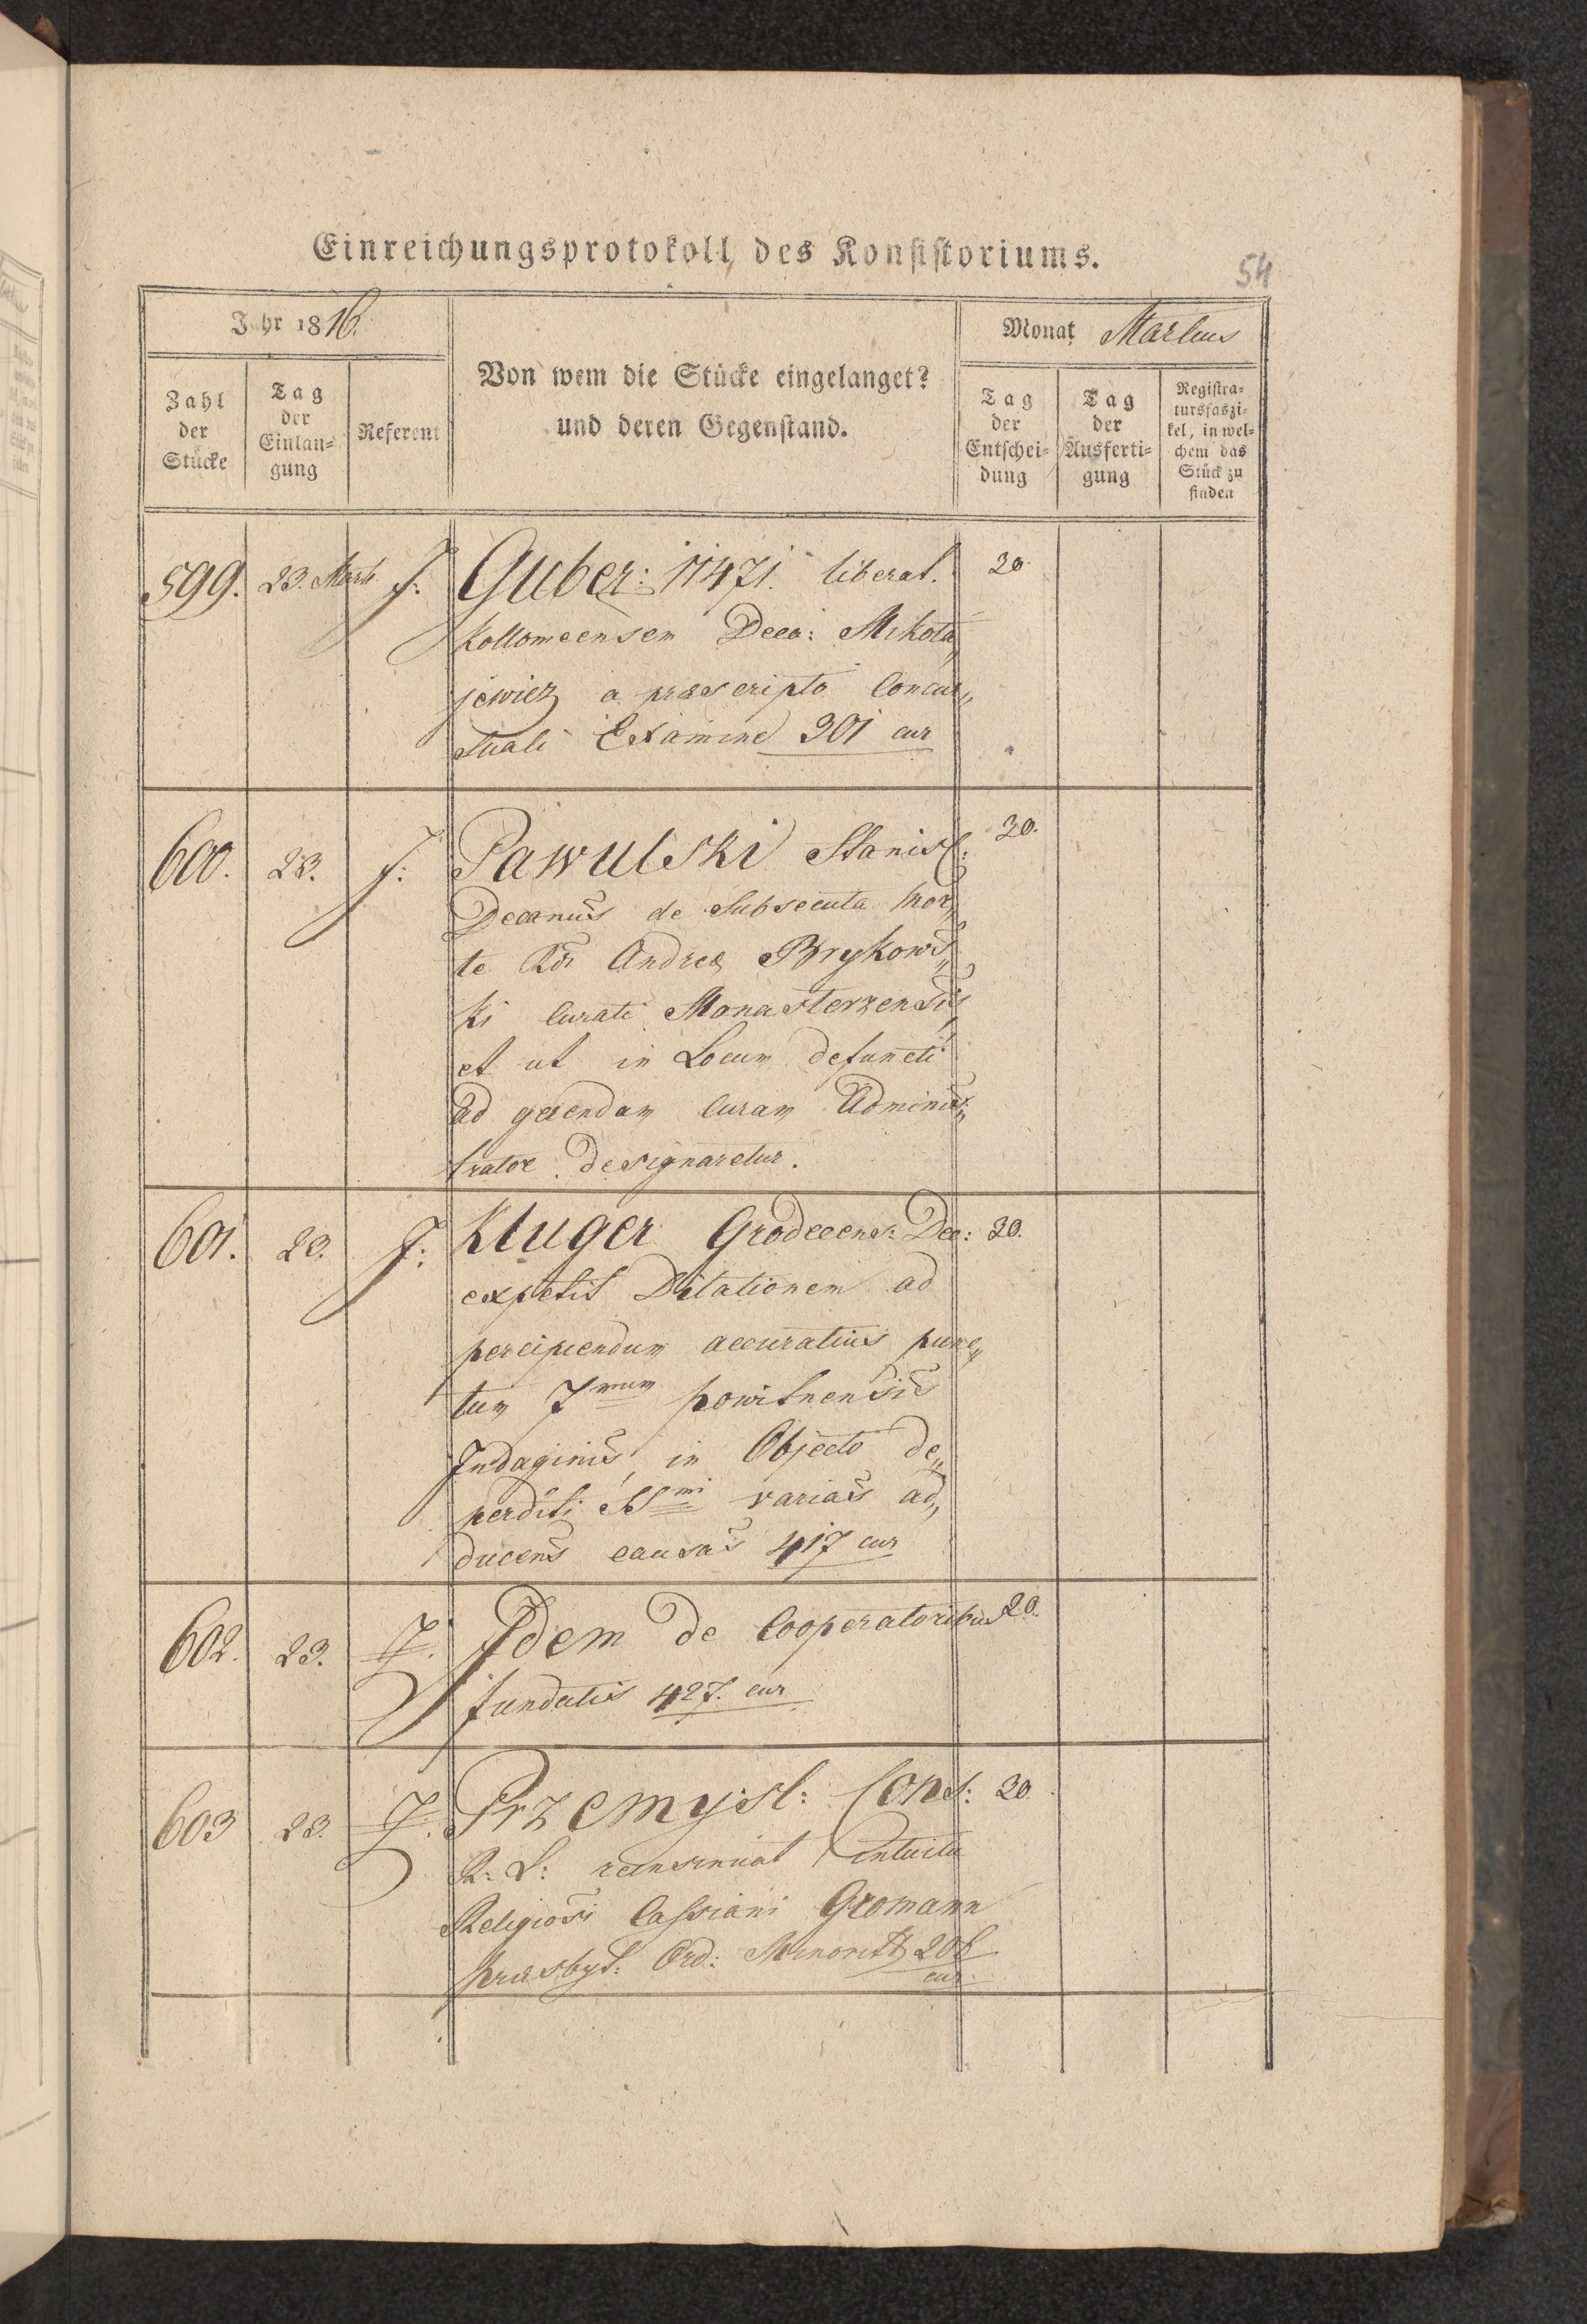 Einreichungsprotokoll des Konsistoriums.
54
Jahr 1816.
Monat Martius
Zahl der Stücke
Tag der Einlangung
Referent
Von wem die Stücke eingelanget?
und deren Gegenstand.
Tag der Entscheidung
Tag der Ausfertigung
Registratursfaszikel, in welchem das Stück zu finden
599. 23. Marti J. Guber: 11471. liberat. 20.
Kollomeensem Deca: Mikola„
jewicz a præscripto Concur„
suali Examine 301 cur
600. 23. J. Pawulski Stanisl: 20.
Decanus de subsecuta mor„
te Rdi Andreæ Brykows„
ki Curati Monasterzensis,
et ut in Locum defuncti
ad gerendam Curam Adminis„
trator designaretur.
601. 23. J. Kluger Grodecens: Dec: 20.
expetit Dilationem ad
percipiendum accuratius punc„
tum 7mum powitnensis
Indaginis, in Objecto de„
perditi SSmi varias ad„
ducens causas 417 cur
602. 23. J. Idem de Cooperatoribus 20.
fundatis 427. cur
603 23. J. Przemysl: Cons: 20.
R: L: reinsinuat intuitu
Religiosi Cassiani Gromann
præsbyt: Ord: Minorit 206
cur.